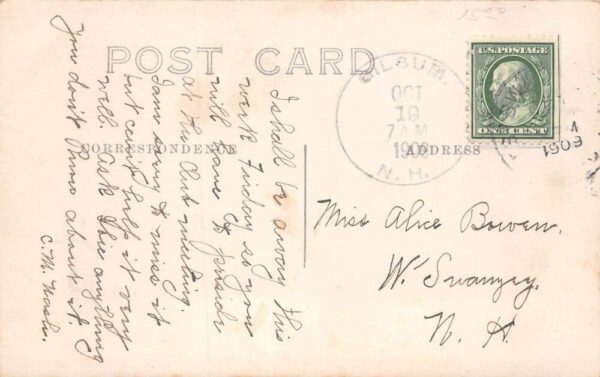 15.00
POST CARD
CORRESPONDENCE
ADDRESS
U.S. POSTAGE
ONE CENT
GILSUM.
OCT
19
7 AM
190
N. H.
1909
I shall be away this
week Friday so you
will have to preside
at the Club meeting.
I am sorry to miss it
but can't help it very
well. Ask Mae anything
you don't know about it
C. M. Nash.
Miss Alice Bowen.
W. Swanzey.
N. H.